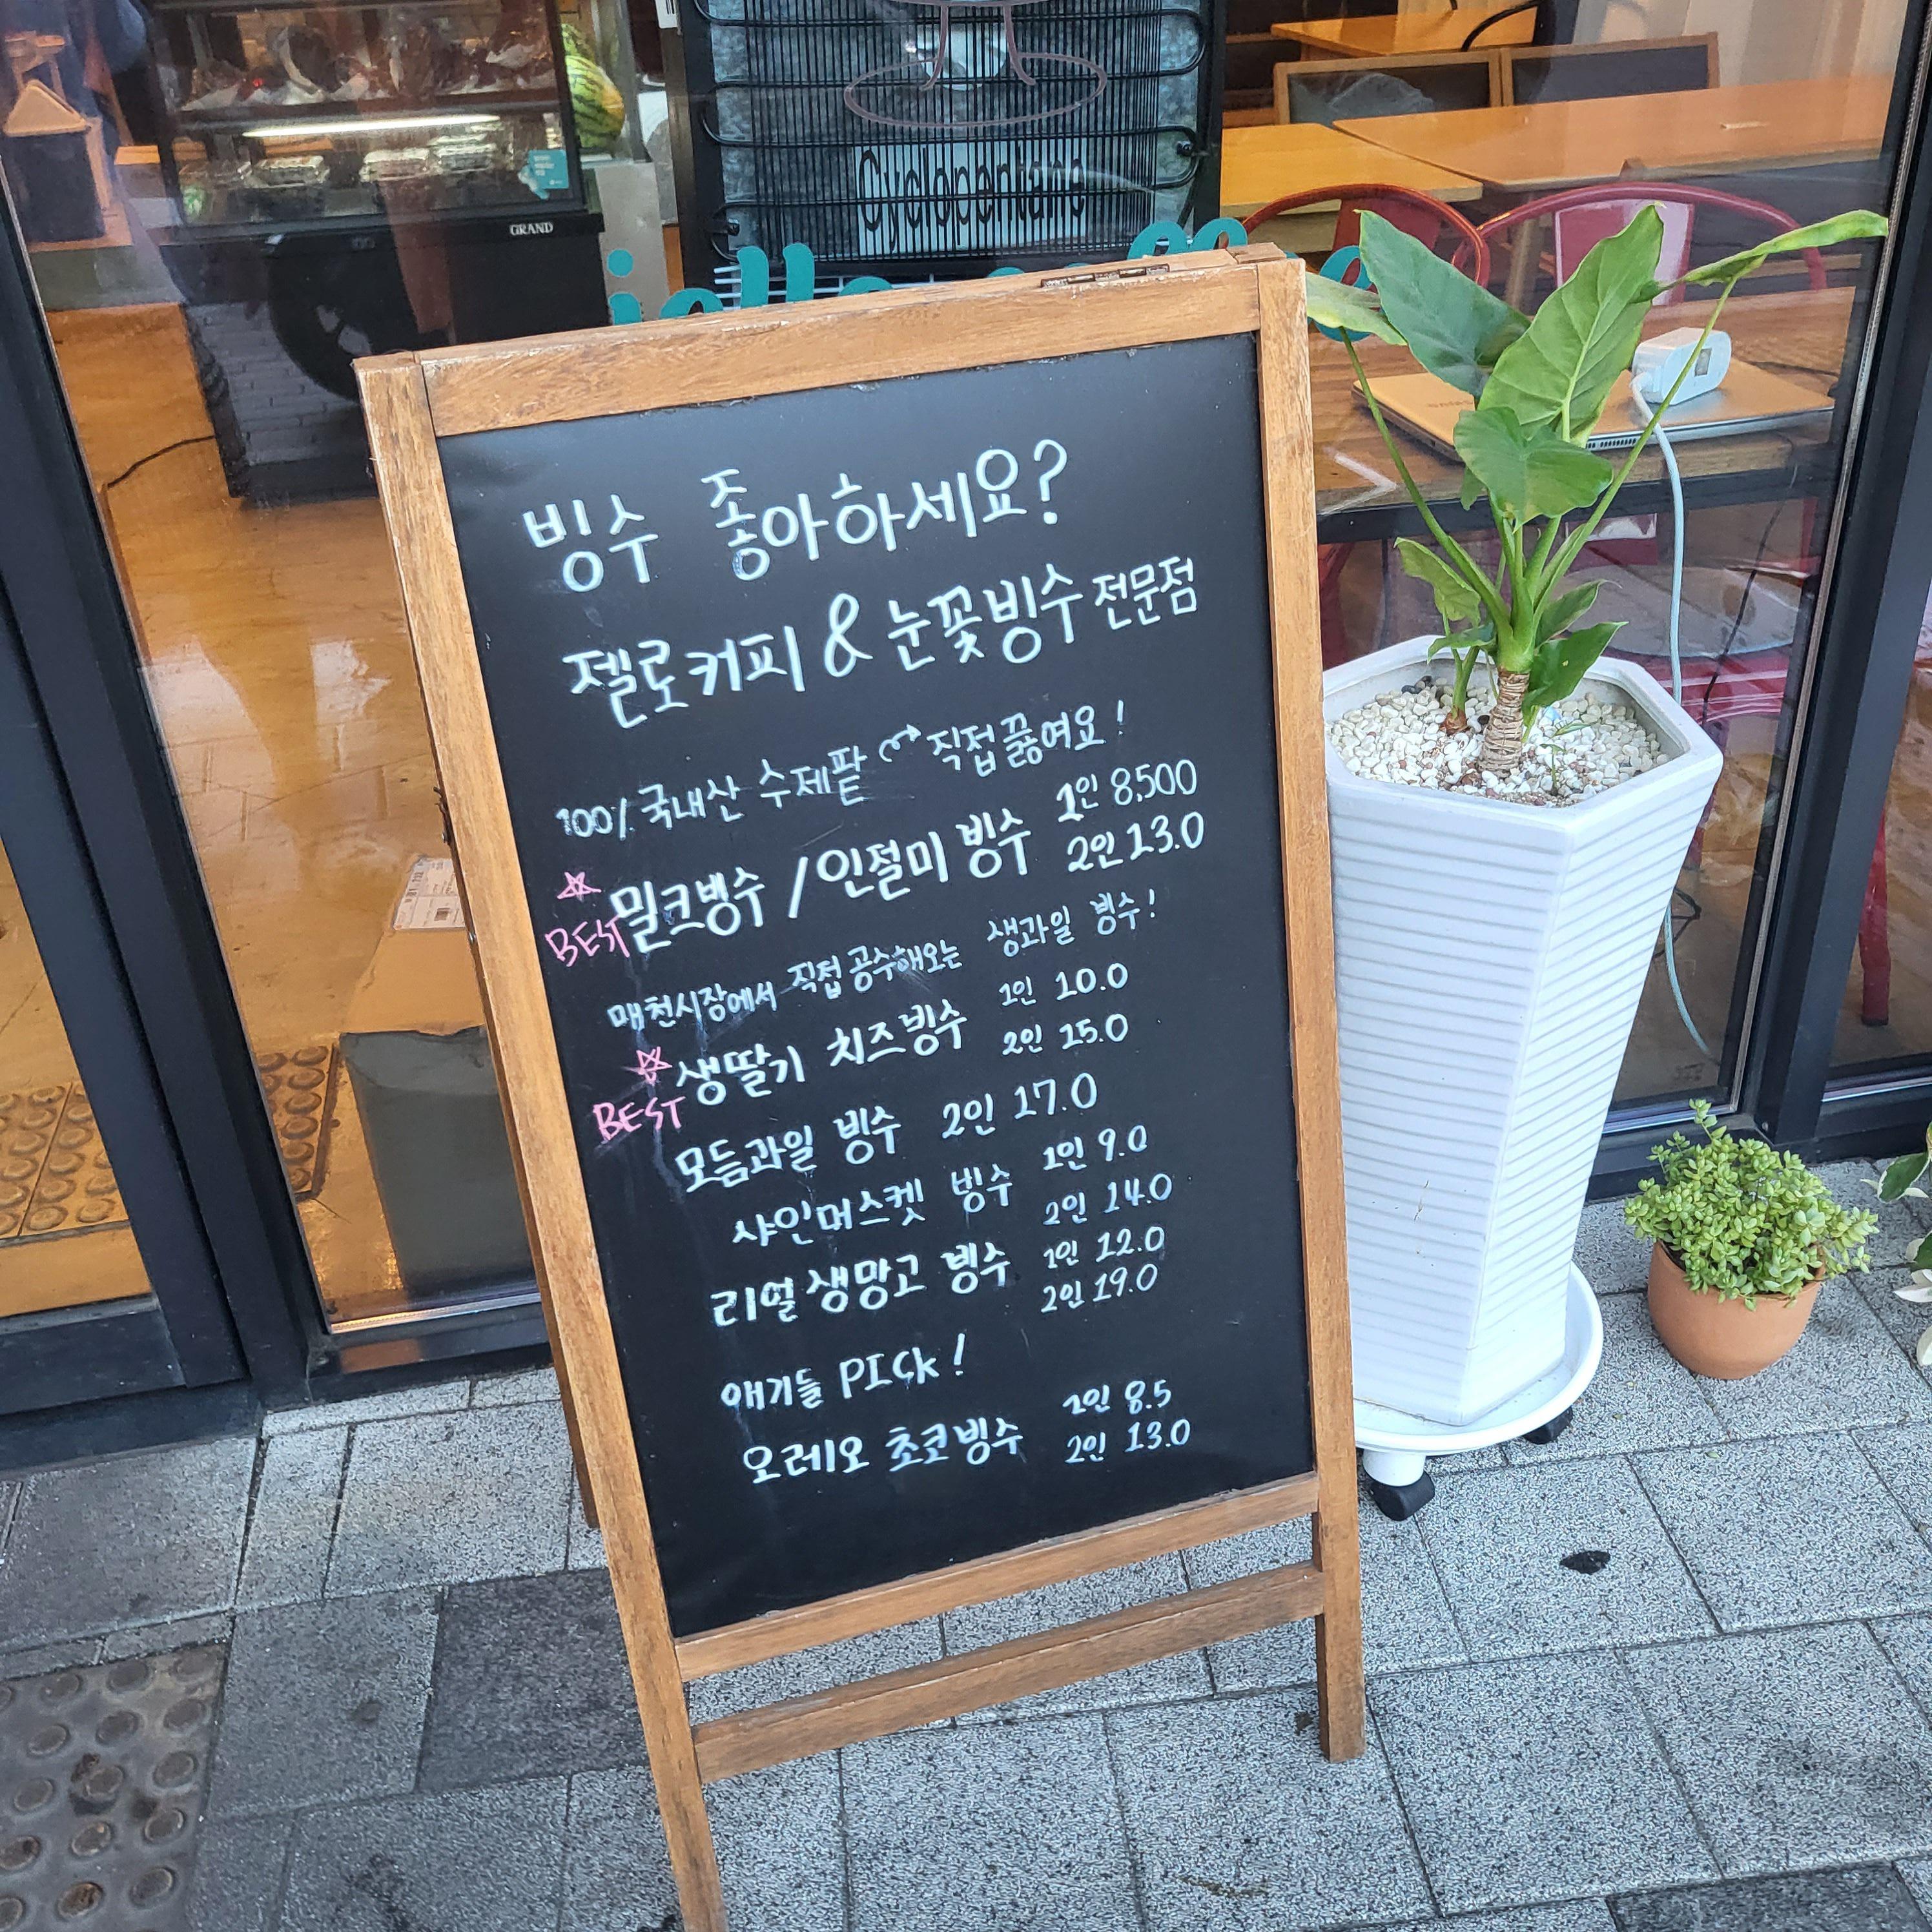 GRAND
Cyclopentane
빙수 좋아하세요?
젤로커피 & 눈꽃빙수 전문점
100% 국내산 수제팥 직접끓여요!
BEST 밀크빙수 / 인절미 빙수 1인 8,500
2인 13.0
매천시장에서 직접 공수해오는 생과일 빙수!
BEST 생딸기 치즈빙수 1인 10.0
2인 15.0
모듬과일 빙수 2인 17.0
샤인머스켓 빙수 1인 9.0
2인 14.0
리얼생망고 빙수 1인 12.0
2인 19.0
애기들 PICk!
오레오 초코빙수 1인 8.5
2인 13.0